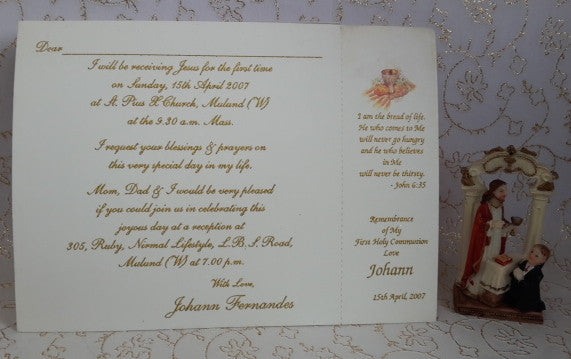 Dear
I will be receiving Jesus for the first time
on Sunday, 15th April 2007
at St. Pius X Church, Mulund (W)
at the 9.30 a.m. Mass.
I request your blessings & prayers on
this very special day in my life.
Mom, Dad & I would be very pleased
if you could join us in celebrating this
joyous day at a reception at
305, Ruby, Normal Lifestyle, L.B.S. Road,
Mulund (W) at 7.00 p.m.
With Love,
Johann Fernandes
I am the bread of life.
He who comes to Me
will never go hungry
and he who believes
in Me
will never be thirsty.
- John 6:35
Remembrance
of My
First Holy Communion
Love
Johann
15th April, 2007